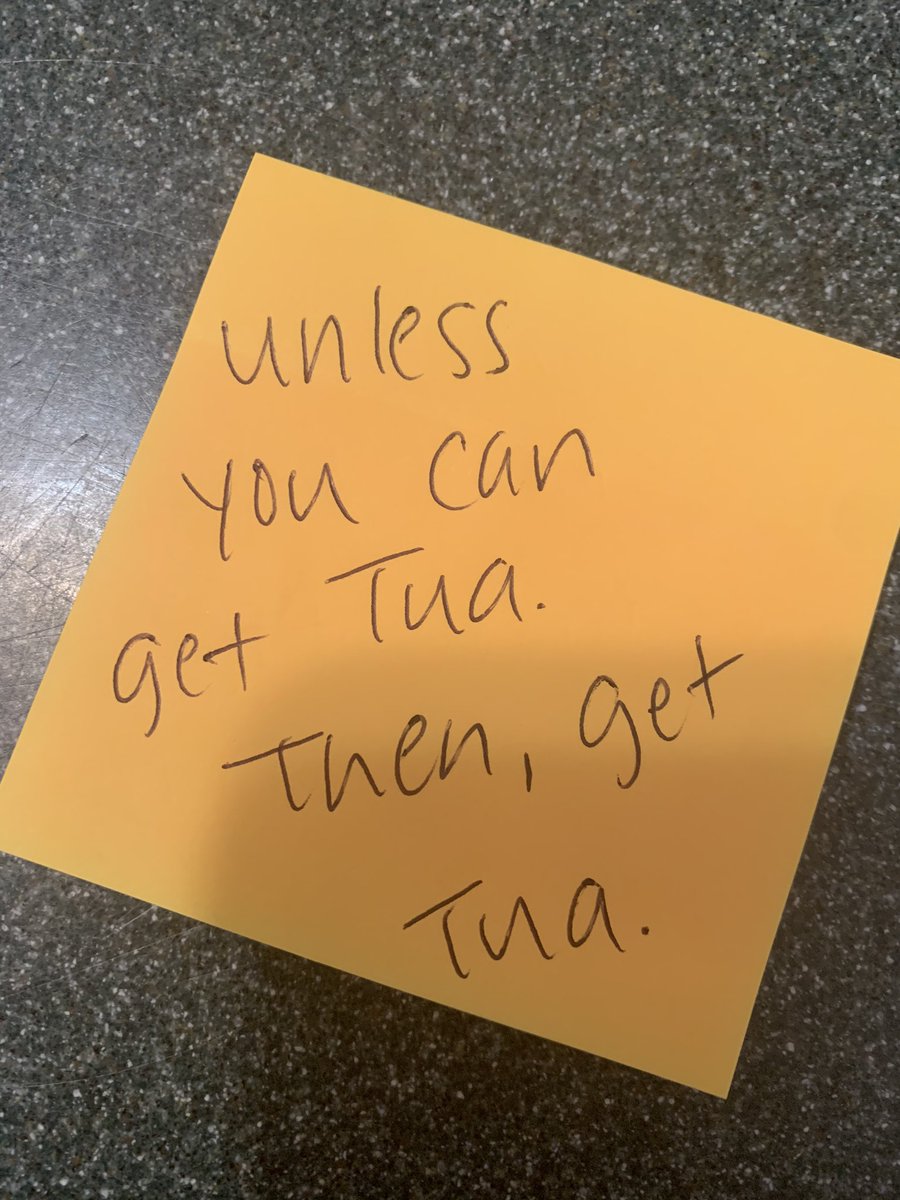 unless
you can
get Tua.
Then, get
Tua.